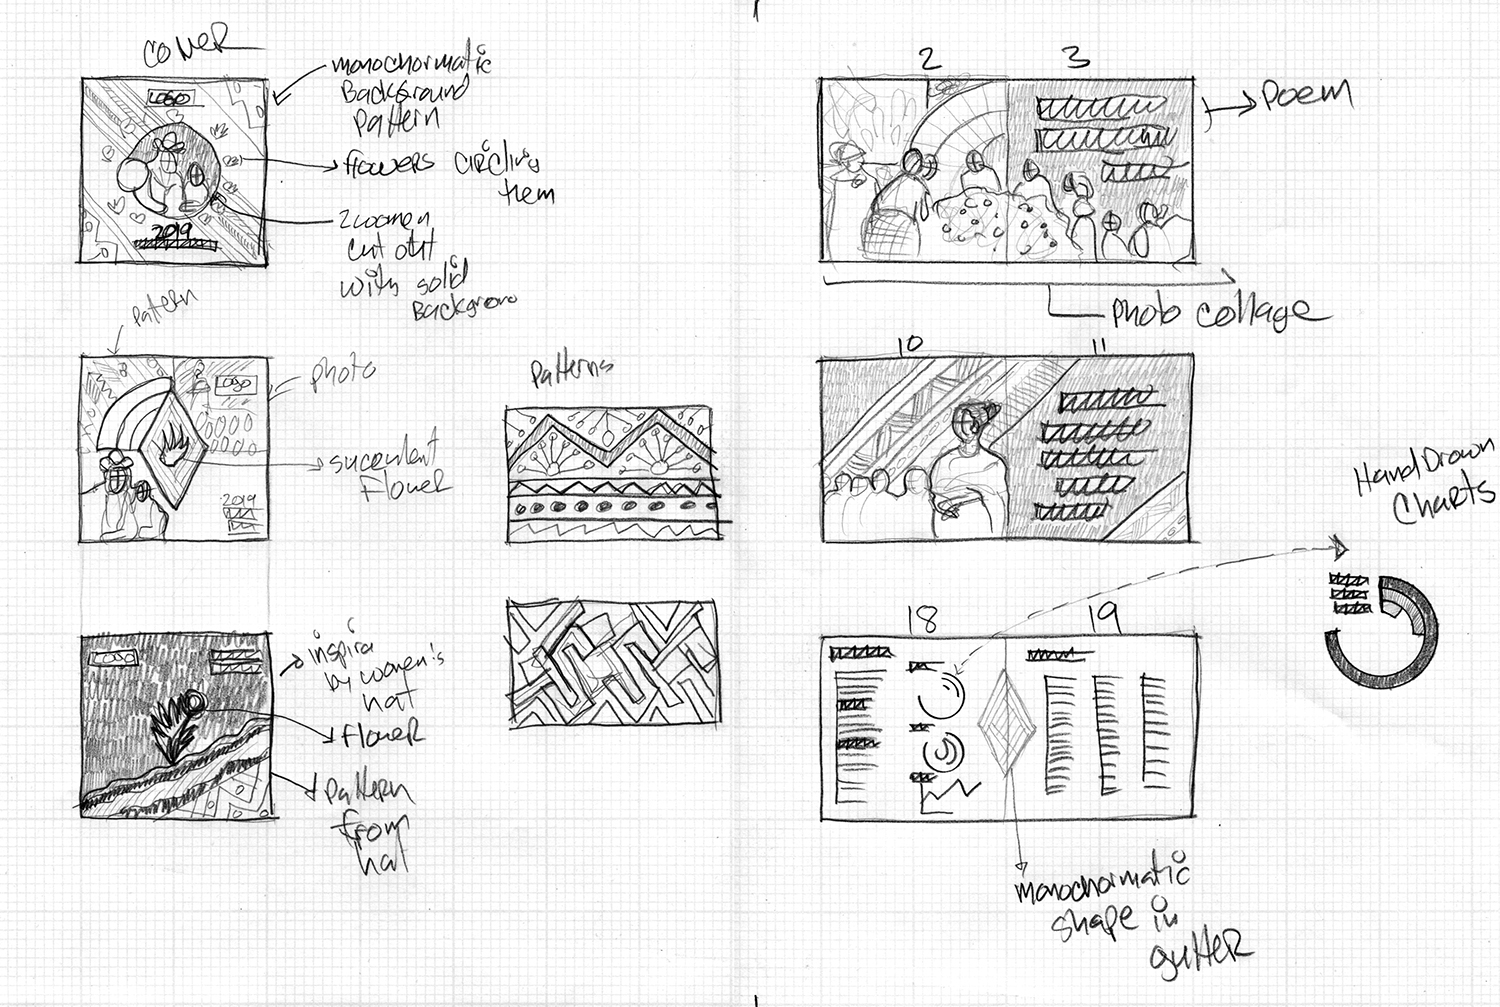 COVER
monochormatic
Background
pattern
flowers circling
them
2 women
cut out
with solid
Background
LOGO
2019
patern
photo
LOGO
succulent
flower
2019
patterns
LOGO
inspira
by women's
hat
flower
pattern
from
hat
2 3
Poem
Photo collage
10 11
Hand Drawn
Charts
18 19
monochormatic
shape in
gutter